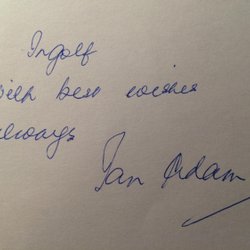 Ingolf
with best wishes
always
Ian Adam